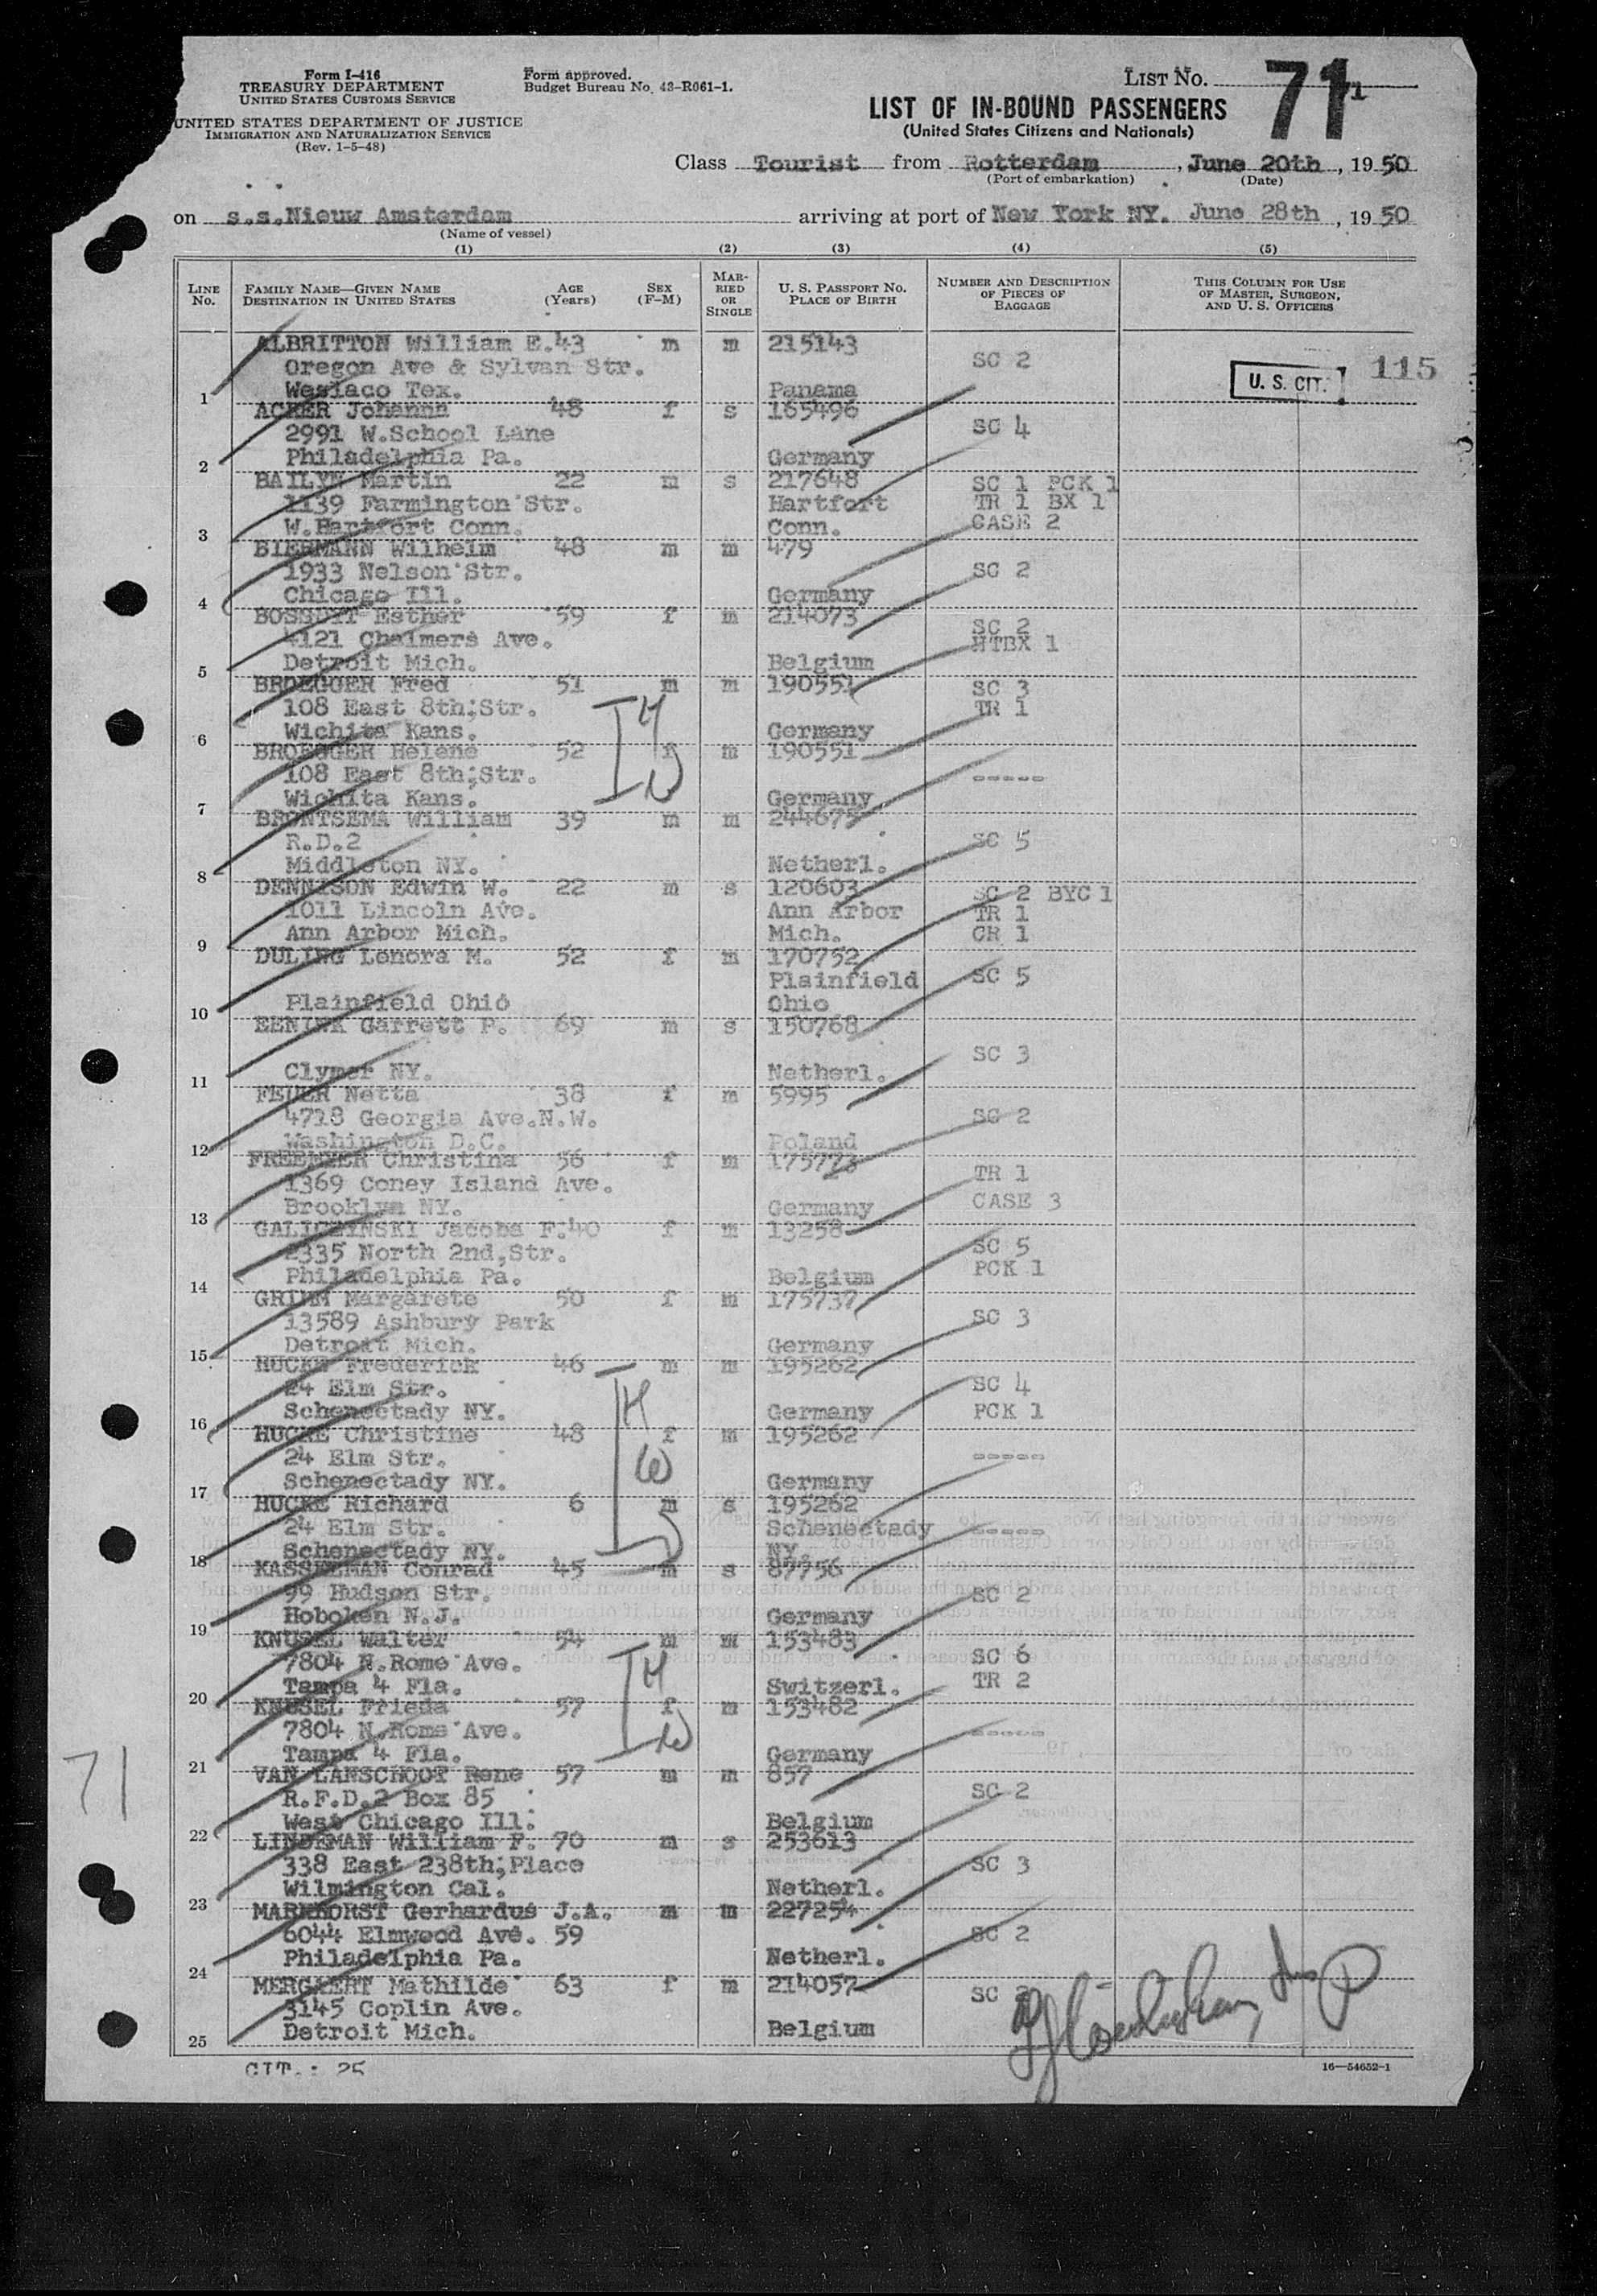 Form I-416
TREASURY DEPARTMENT
UNITED STATES CUSTOMS SERVICE
UNITED STATES DEPARTMENT OF JUSTICE
IMMIGRATION AND NATURALIZATION SERVICE
(Rev. 1-5-48)
Form approved.
Budget Bureau No. 43-R061-1.
LIST NO. 71
LIST OF IN-BOUND PASSENGERS
(United States Citizens and Nationals)
Class Tourist from Rotterdam, June 20th, 1950
(Port of embarkation) (Date)
on s.s.Nieuw Amsterdam arriving at port of New York NY. June 28th, 1950
(Name of vessel)
(1) (2) (3) (4) (5)
LINE NO.
FAMILY NAME—GIVEN NAME
DESTINATION IN UNITED STATES
AGE (Years)
SEX (F-M)
MARRIED OR SINGLE
U. S. PASSPORT NO.
PLACE OF BIRTH
NUMBER AND DESCRIPTION OF PIECES OF BAGGAGE
THIS COLUMN FOR USE OF MASTER, SURGEON, AND U. S. OFFICERS
ALBRITTON William E. 43 m m 215143
Oregon Ave & Sylvan Str. SC 2
U. S. CIT. 115
1 Weslaco Tex. Panama
ACKER Johanna 48 f s 165496
2991 W.School Lane SC 4
2 Philadelphia Pa. Germany
BAILYN Martin 22 m s 217648 SC 1 PCK 1
1139 Farmington Str. Hartfort TR 1 BX 1
3 W.Hartfort Conn. Conn. CASE 2
BIERMANN Wilhelm 48 m m 479
1933 Nelson Str. SC 2
4 Chicago Ill. Germany
BOSSUYT Esther 59 f m 214073 SC 2
4121 Chalmers Ave. HTBX 1
5 Detroit Mich. Belgium
BROEGGER Fred 51 m m 190551 SC 3
108 East 8th;Str. TR 1
6 Wichita Kans. Germany
BROEGGER Helene 52 f m 190551
108 East 8th;Str. -----
7 Wichita Kans. Germany
BRONTSEMA William 39 m m 244675
R.D.2 SC 5
8 Middleton NY. Netherl.
DENNISON Edwin W. 22 m s 120603 SC 2 BYC 1
1011 Lincoln Ave. Ann Arbor TR 1
9 Ann Arbor Mich. Mich. CR 1
DULING Lenora M. 52 f m 170752
Plainfield SC 5
10 Plainfield Ohio Ohio
EENINK Garrett P. 69 m s 150768
SC 3
11 Clymer NY. Netherl.
FEUER Netta 38 f m 5995
4718 Georgia Ave.N.W. SC 2
12 Washington D.C. Poland
Christina 56 f m 175773
1369 Coney Island Ave. TR 1
13 Brooklyn NY. Germany CASE 3
GALICZYNSKI Jacoba F. 40 f m 13258
2335 North 2nd,Str. SC 5
14 Philadelphia Pa. Belgium PCK 1
GRIMM Margarete 50 f m 175737
13589 Ashbury Park SC 3
15 Detroit Mich. Germany
HUCKE Frederick 46 m m 195262
24 Elm Str. SC 4
16 Schenectady NY. Germany PCK 1
HUCKE Christine 48 f m 195262
24 Elm Str. -----
17 Schenectady NY. Germany
HUCKE Richard 6 m s 195262
24 Elm Str. Schenectady -----
18 Schenectady NY. NY.
KASSELMAN Conrad 45 m s 87756
99 Hudson Str. SC 2
19 Hoboken N.J. Germany
KNUSEL Walter 54 m m 153483
7804 N.Rome Ave. SC 6
20 Tampa 4 Fla. Switzerl. TR 2
KNUSEL Frieda 57 f m 153482
7804 N.Rome Ave. -----
21 Tampa 4 Fla. Germany
VAN LANSCHOOT Rene 57 m m 857
R.F.D.2 Box 85 SC 2
22 West Chicago Ill. Belgium
LINDEMAN William F. 70 m s 253613
338 East 238th;Place SC 3
23 Wilmington Cal. Netherl.
MARKHORST Gerhardus J.A. m m 227254
6044 Elmwood Ave. 59 SC 2
24 Philadelphia Pa. Netherl.
MERGAERT Mathilde 63 f m 214057
3145 Coplin Ave. SC
25 Detroit Mich. Belgium
CIT.: 25
16—54652-1
71